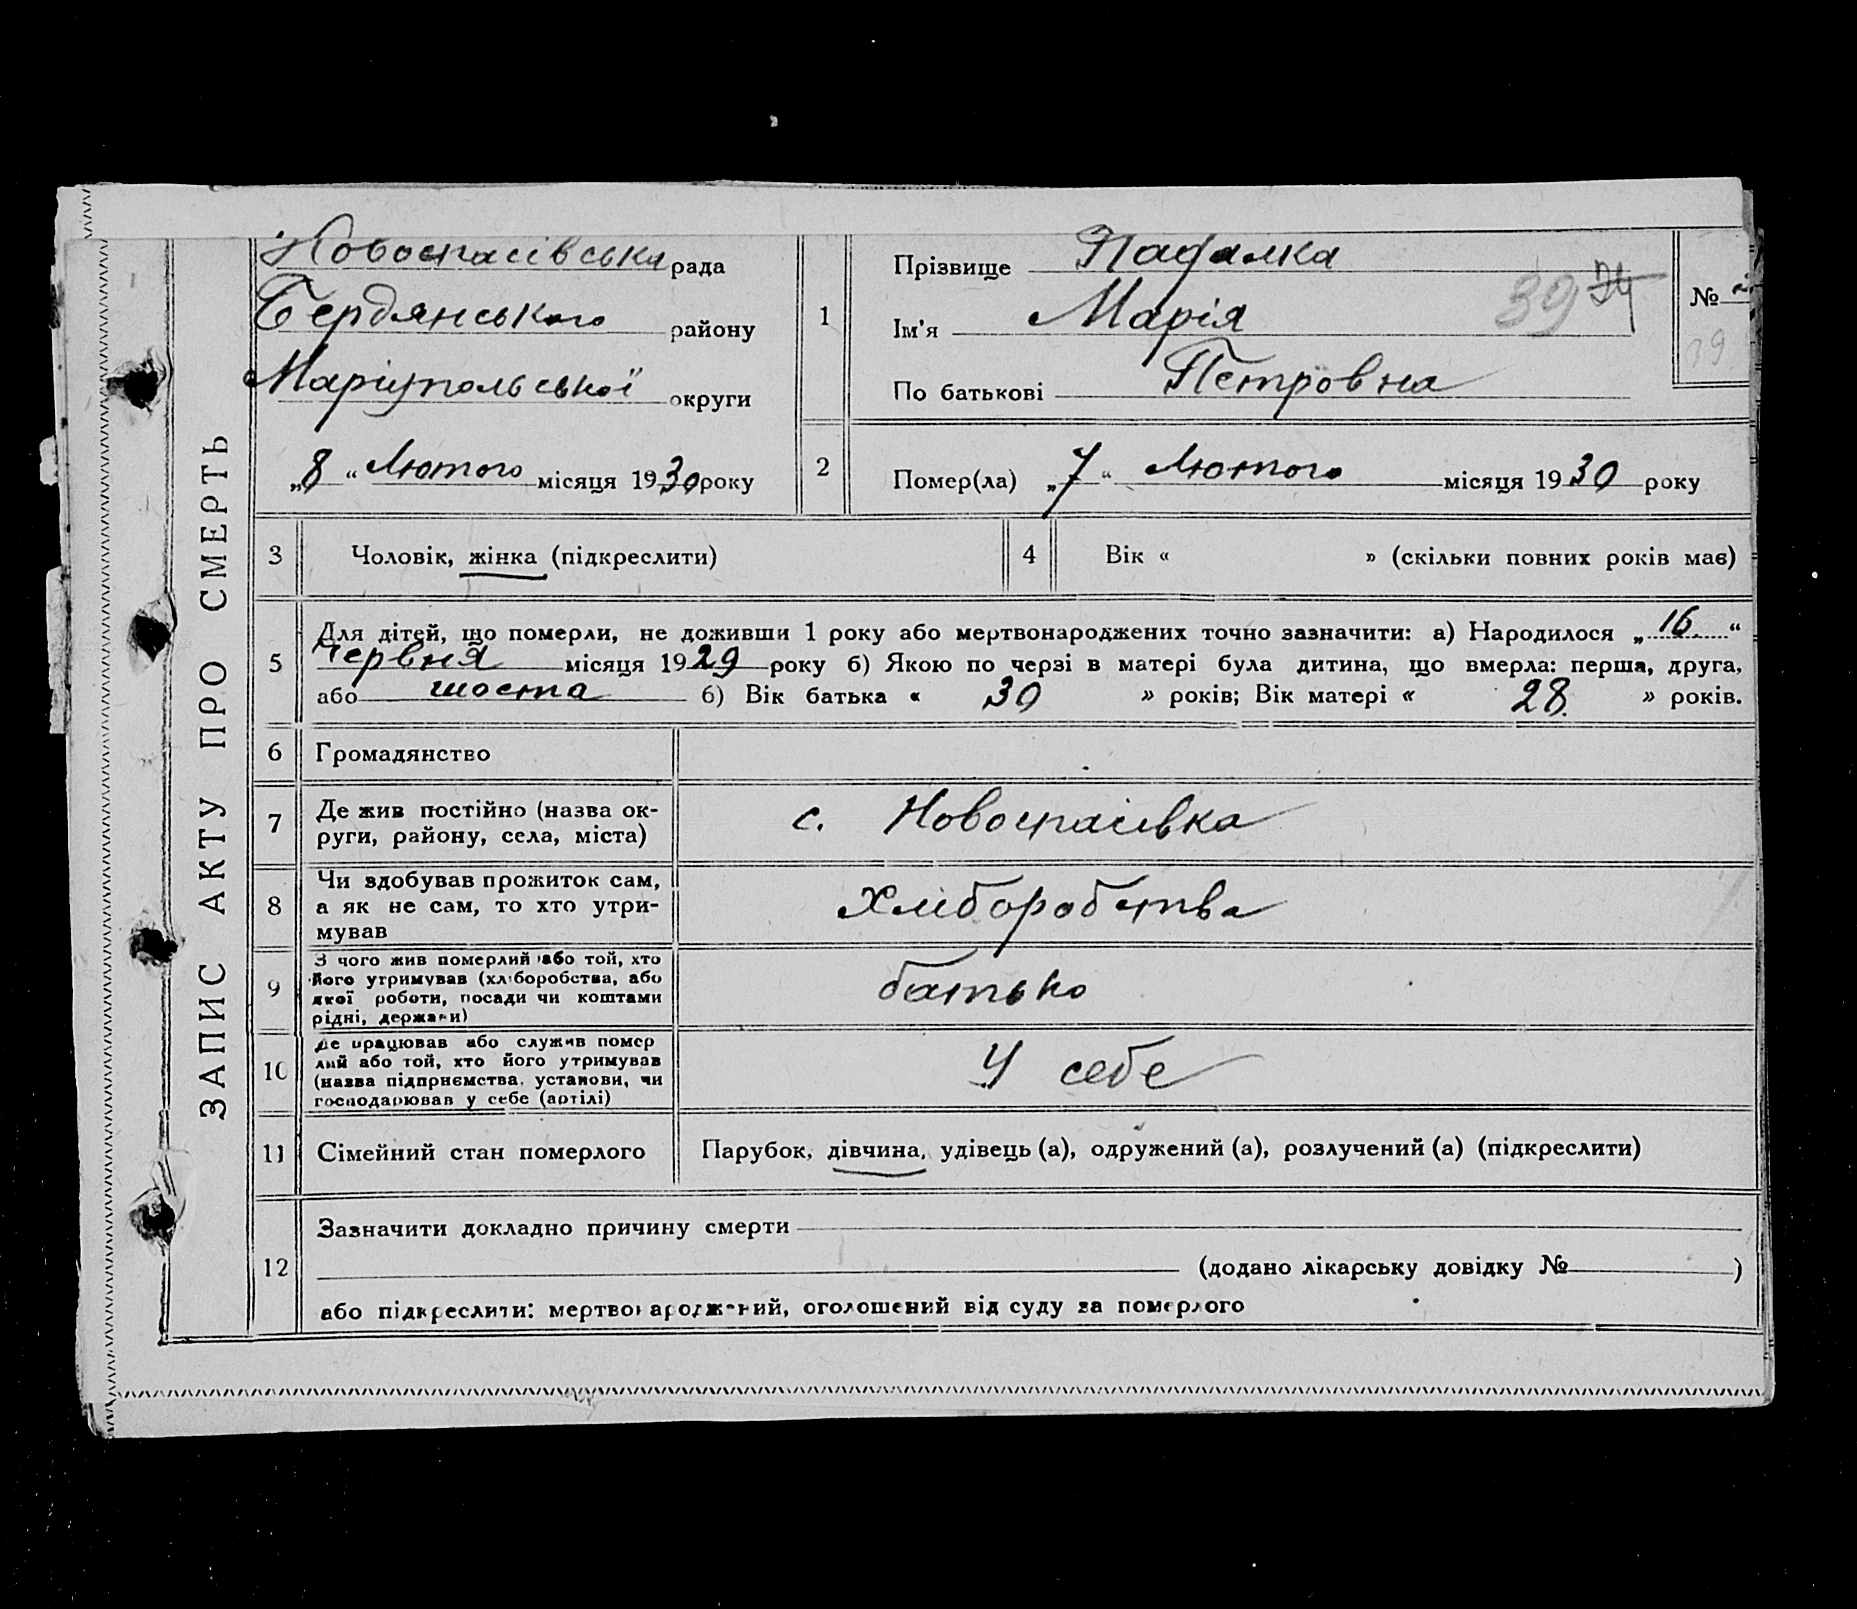 ЗАПИС АКТУ ПРО СМЕРТЬ
Новоспасівська рада
Бердянського району
Маріупольської округи
„8“ Лютого місяця 1930 року
1
Прізвище Падалка
Ім'я Марія
По батькові Петровна
39
№
19
2
Помер(ла) „7“ Лютого місяця 1930 року
3 Чоловік, жінка (підкреслити)
4 Вік « » (скільки повних років має)
5
Для дітей, що померли, не доживши 1 року або мертвонароджених точно зазначити: а) Народилося „16“
Червня місяця 1929 року б) Якою по черзі в матері була дитина, що вмерла: перша, друга,
або шоста б) Вік батька « 30 » років; Вік матері « 28 » років.
6 Громадянство
7
Де жив постійно (назва ок-
руги, району, села, міста)
с. Новоспасівка
8
Чи здобував прожиток сам,
а як не сам, то хто утри-
мував
Хліборобства
9
З чого жив померлий або той, хто
його утримував (хліборобства, або
якої роботи, посади чи коштами
рідні, держави)
батько
10
Де працював або служив помер
лий або той, хто його утримував
(назва підприємства, установи, чи
господарював у себе (артілі)
У себе
11 Сімейний стан померлого
Парубок, дівчина, удівець (а), одружений (а), розлучений (а) (підкреслити)
12
Зазначити докладно причину смерти
(додано лікарську довідку № )
або підкреслити: мертвонароджений, оголошений від суду за померлого